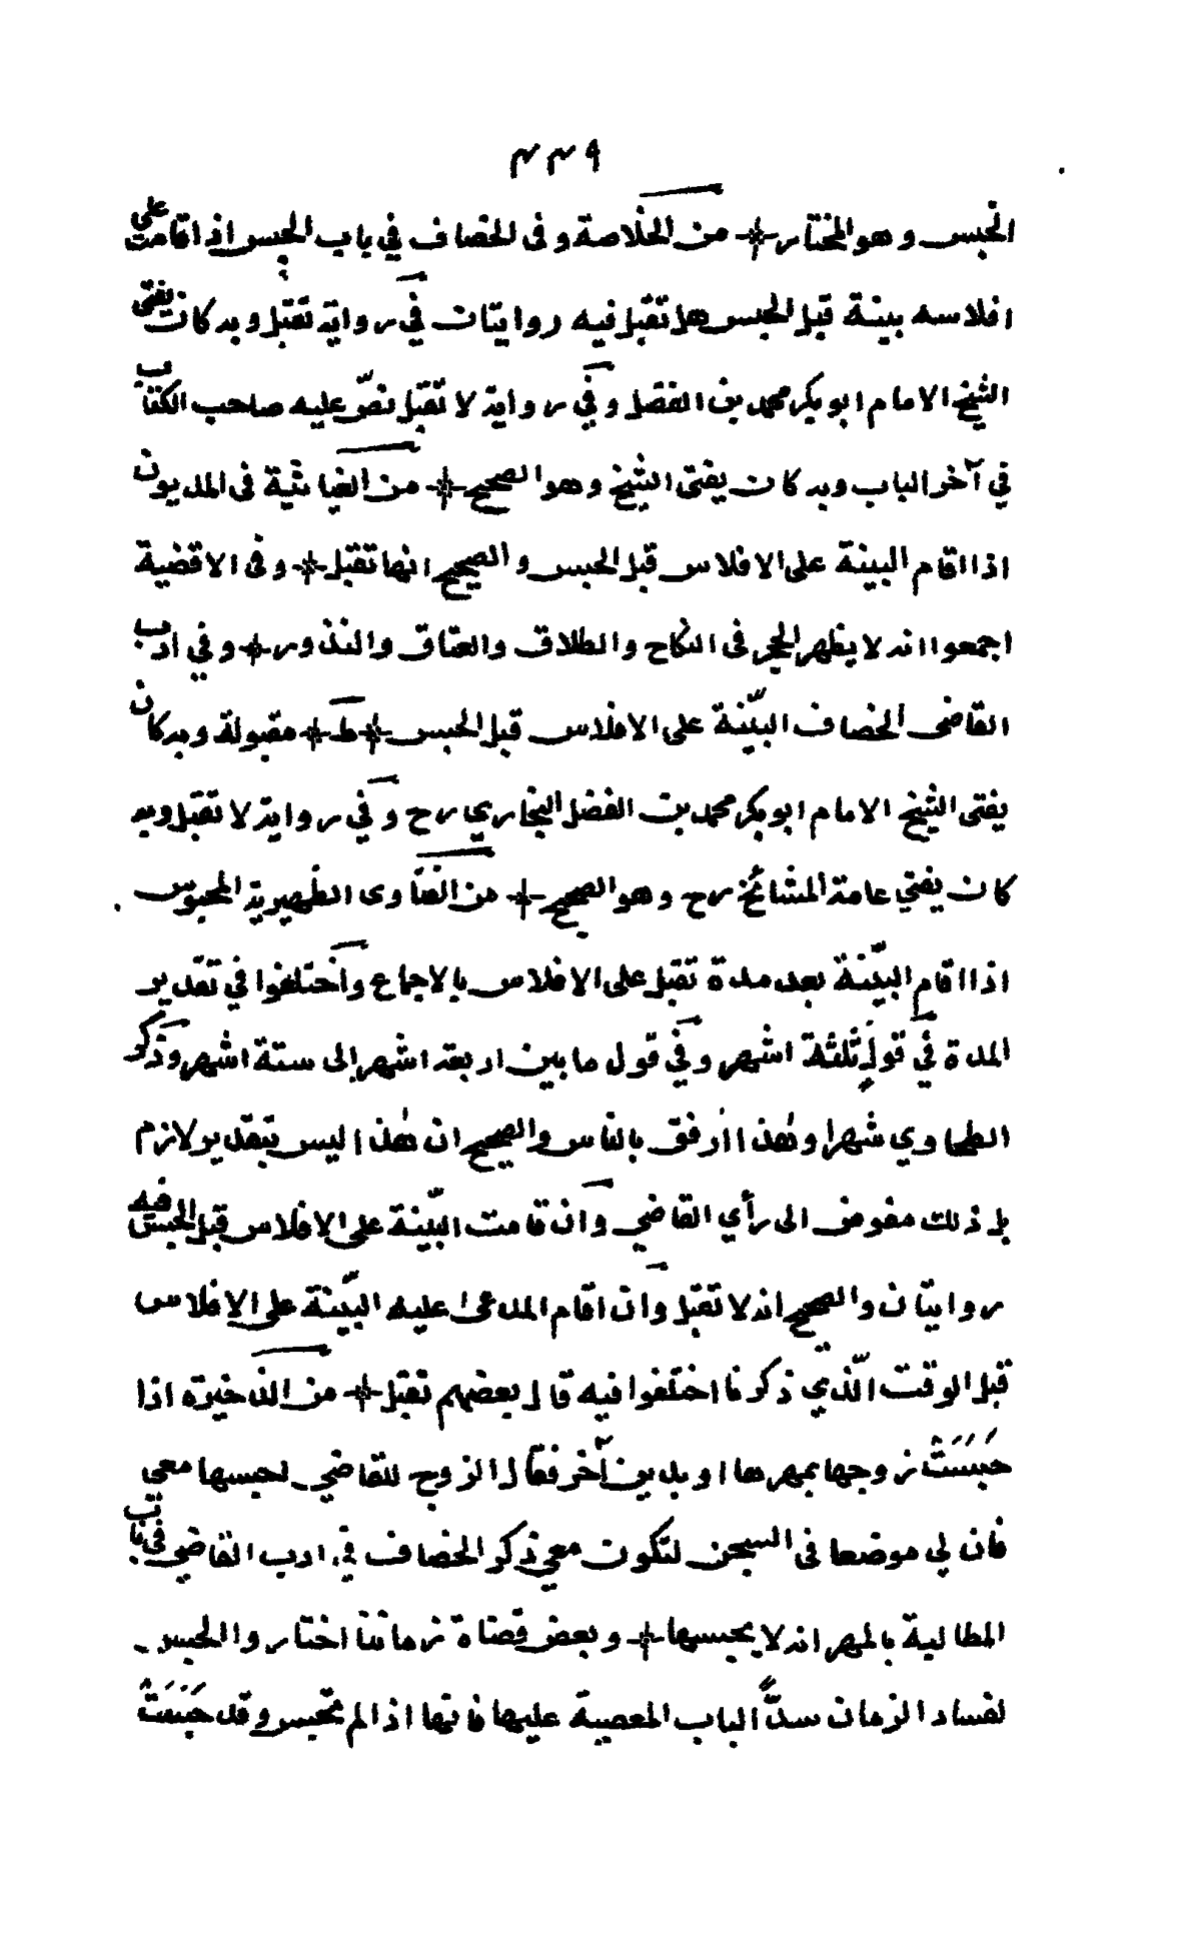 ٣٣٩
الحبس وهو المختار * من الخلاصة وفى الخصاف في باب الحبس اذا قامت على
افلاسه بينة قبل الحبس هل تقبل فيه روايتان في رواية تقبل وبه كان يفتى
الشيخ الامام ابو بكر محمد بن الفضل وفي رواية لا تقبل نصّ عليه صاحب الكتاب
في آخر الباب وبه كان يفتى الشيخ وهو الصحيح * من الغياثية فى المديون
اذا اقام البينة على الافلاس قبل الحبس والصحيح انها تقبل * وفى الاقضية
اجمعوا انه لا يظهر الحجر فى النكاح والطلاق والعتاق والنذور * وفي ادب
القاضى الخصاف البيّنة على الافلاس قبل الحبس * ط * مقبولة وبه كان
يفتى الشيخ الامام ابو بكر محمد بن الفضل البخاري رح وفي رواية لا تقبل وبه
كان يفتي عامة المشائخ رح وهو الصحيح * من الفتاوى الظهيرية المحبوس
اذا اقام البيّنة بعد مدة تقبل على الافلاس بالاجماع واختلفوا في تقدير
المدة في قولٍ ثلثة اشهر وفي قول ما بين اربعة اشهر الى ستة اشهر وذكر
الطحاوي شهرا وهذا ارفق بالناس والصحيح ان هذا ليس بتقدير لازم
بل ذلك مفوض الى رأي القاضي وان قامت البيّنة على الافلاس قبل الحبس فيه
روايتان والصحيح انه لا تقبل وان اقام المدعى عليه البيّنة على الافلاس
قبل الوقت الّذي ذكرنا اختلفوا فيه قال بعضهم تقبل * من الذخيرة اذا
حَبَسَتْ زوجها بمهرها او بدين آخر فقال الزوج للقاضي احبسها معي
فان لي موضعا فى السجن لتكون معي ذكر الخصاف في ادب القاضي في باب
المطالبة بالمهر انه لا يحبسها * وبعض قضاة زماننا اختاروا الحبس
لفساد الزمان سدًّا لباب المعصية عليها فانها اذا لم تحبس وقد حَبَسَتْ